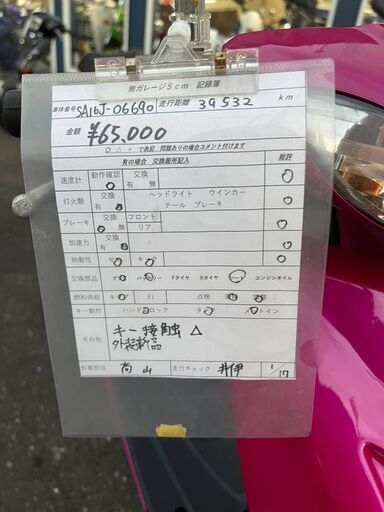 無ガレージ5cm 記録簿
車体番号 SA16J-06690 走行距離 39532 km
金額 ¥65,000
○ △ × で表記 問題ありの場合コメント付けます
有の場合 交換箇所記入 総評
速度計 動作確認 交換 有 無
灯火類 交換 有 無 ヘッドライト ウインカー テール ブレーキ
ブレーキ 交換 無 フロント リア
加速力 交換
始動性 セ キ
交換部品 Fタイヤ Rタイヤ エンジンオイル
燃料供給 Fi 点検
キー動作 ハンドルロック メットイン
その他 キー接触 △
外装新品
作業担当 走行チェック 1/17